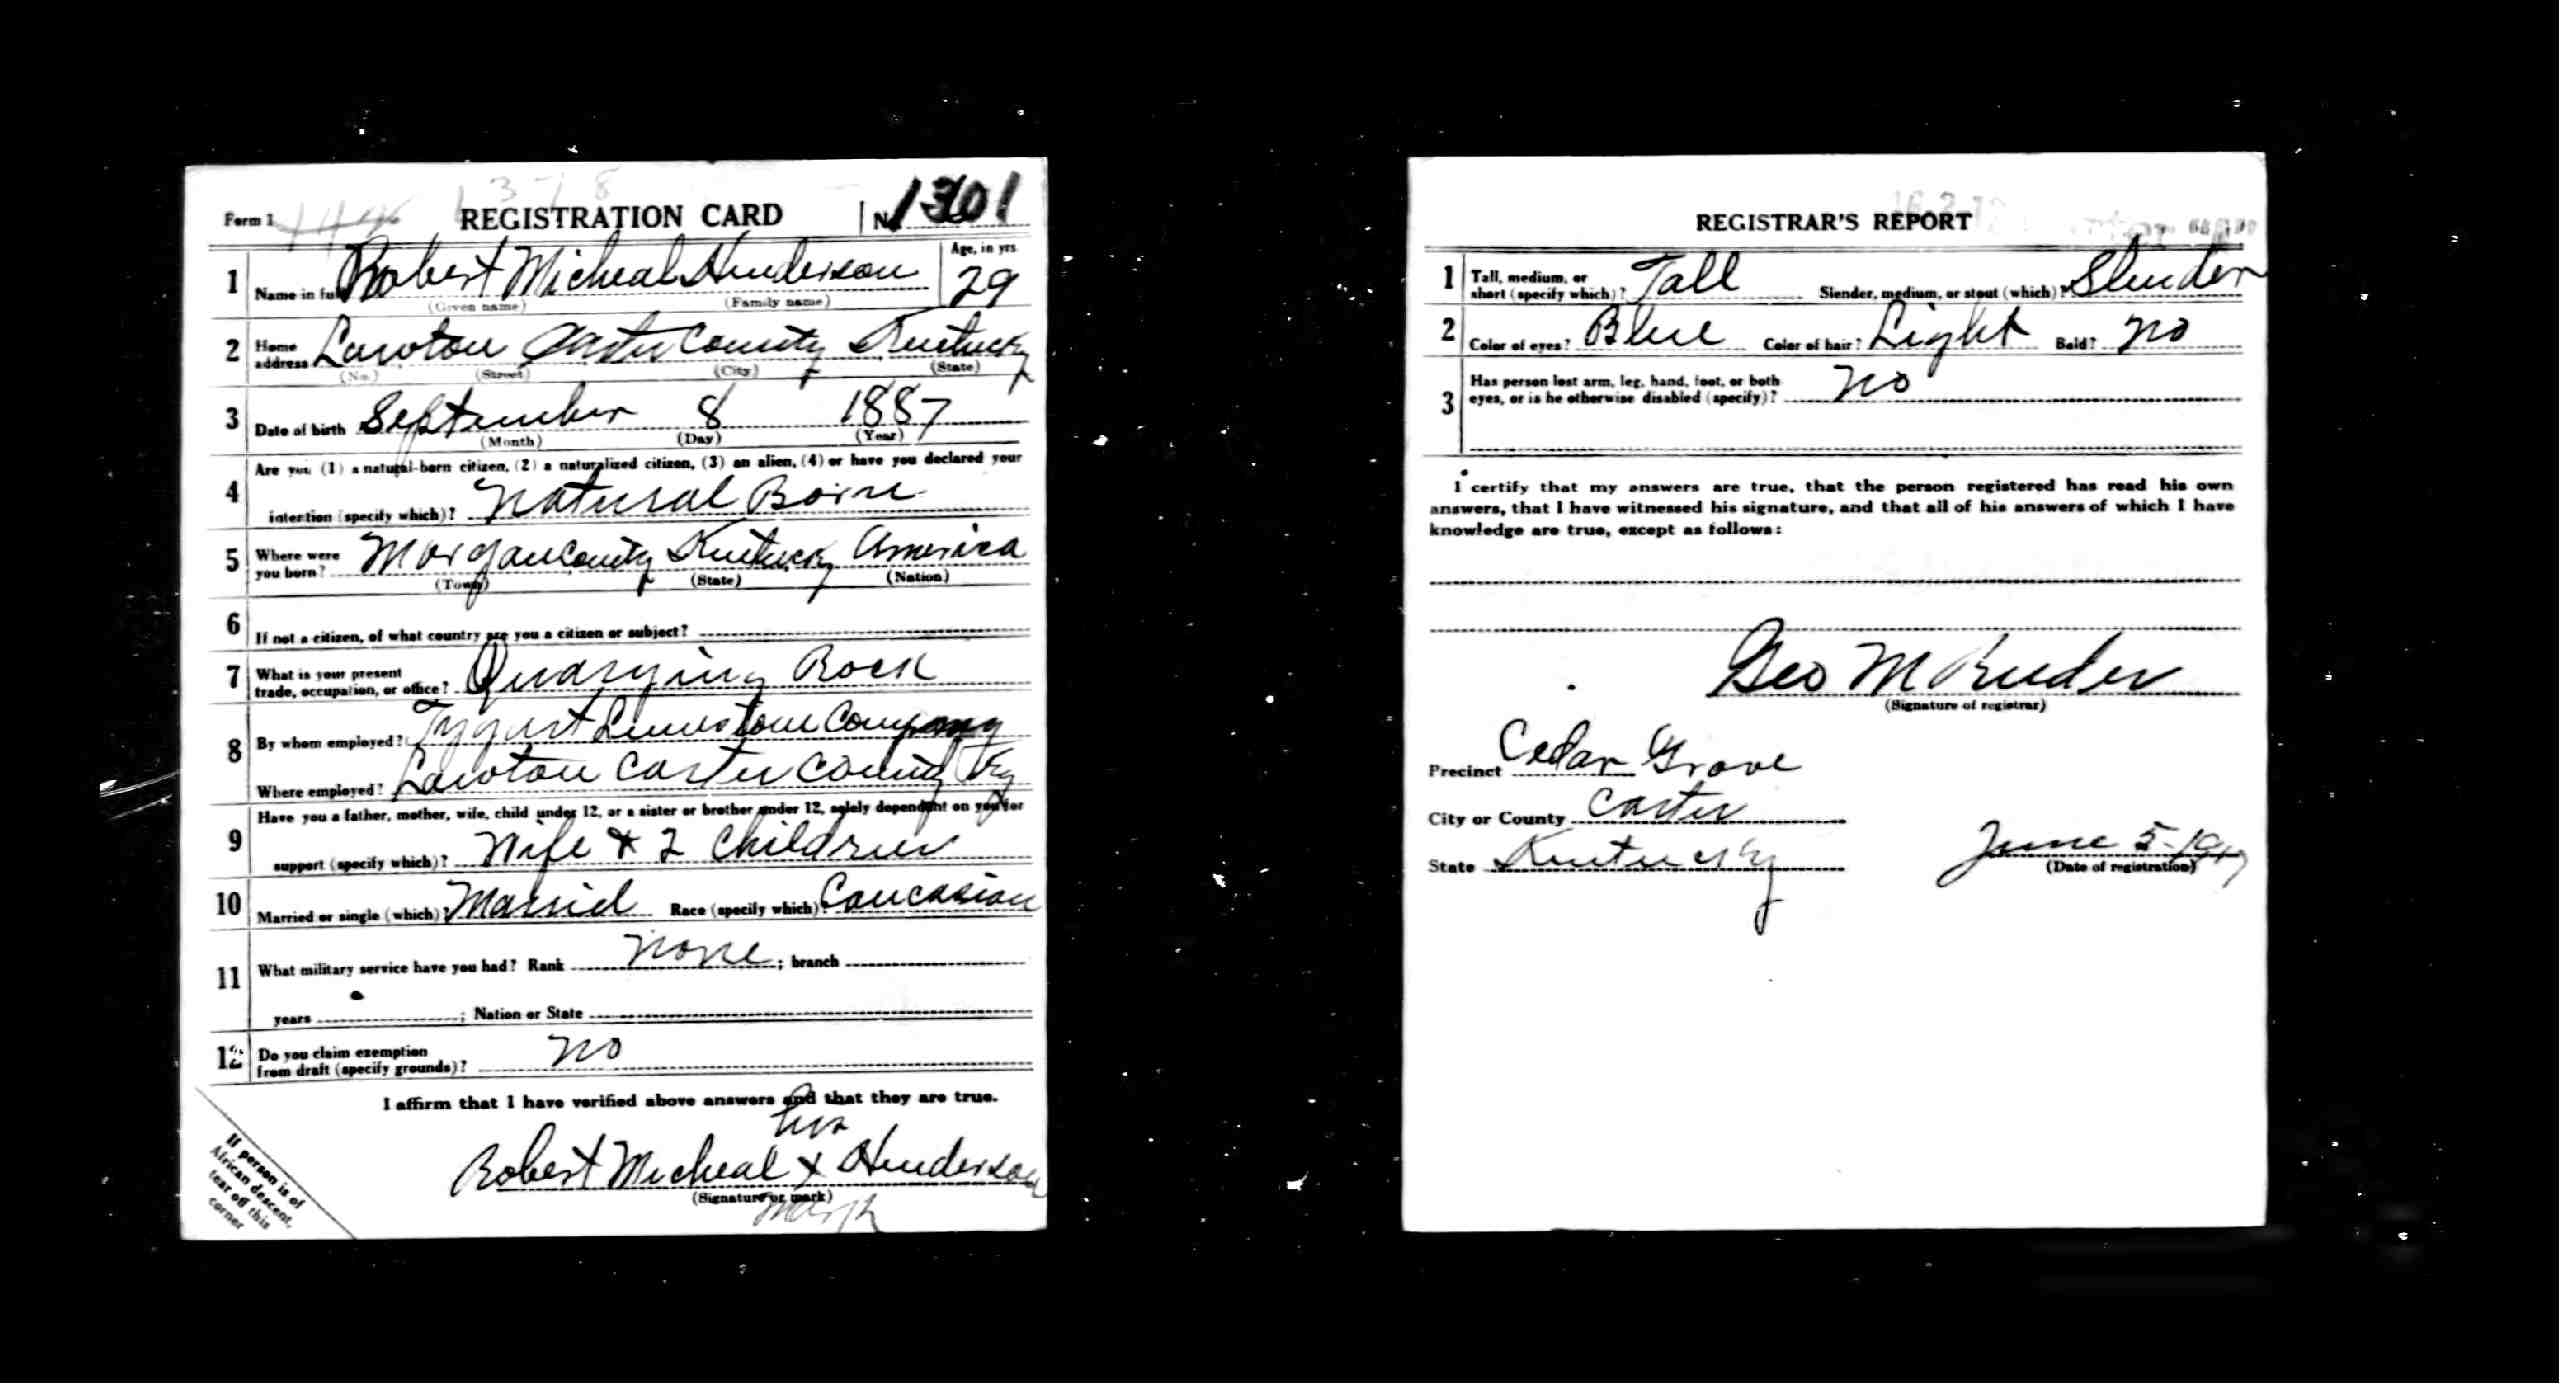 Form 1 REGISTRATION CARD No. 1301
1 Name in full Robert Micheal Henderson Age, in yrs. 29
(Given name) (Family name)
2 Home address Lawton Carter County Kentucky
(No.) (Street) (City) (State)
3 Date of birth September 8 1887
(Month) (Day) (Year)
4 Are you (1) a natural-born citizen, (2) a naturalized citizen, (3) an alien, (4) or have you declared your
intention (specify which)? Natural Born
5 Where were you born? Morgan County Kentucky America
(Town) (State) (Nation)
6 If not a citizen, of what country are you a citizen or subject?
7 What is your present trade, occupation, or office? Quarying Rock
8 By whom employed? Tygart Limestone Company
Where employed? Lawton Carter County Ky
9 Have you a father, mother, wife, child under 12, or a sister or brother under 12, solely dependent on you for
support (specify which)? Wife & 2 Children
10 Married or single (which)? Married Race (specify which)? Caucasian
11 What military service have you had? Rank none ; branch
years ; Nation or State
12 Do you claim exemption from draft (specify grounds)? No
I affirm that I have verified above answers and that they are true.
his
Robert Micheal x Henderson
(Signature or mark)
mark
If person is of
African descent,
tear off this
corner
REGISTRAR'S REPORT
1 Tall, medium, or short (specify which)? Tall Slender, medium, or stout (which)? Slender
2 Color of eyes? Blue Color of hair? Light Bald? No
3 Has person lost arm, leg, hand, foot, or both eyes, or is he otherwise disabled (specify)? No
I certify that my answers are true, that the person registered has read his own
answers, that I have witnessed his signature, and that all of his answers of which I have
knowledge are true, except as follows:
Geo M
(Signature of registrar)
Precinct Cedar Grove
City or County Carter
State Kentucky June 5-1917
(Date of registration)